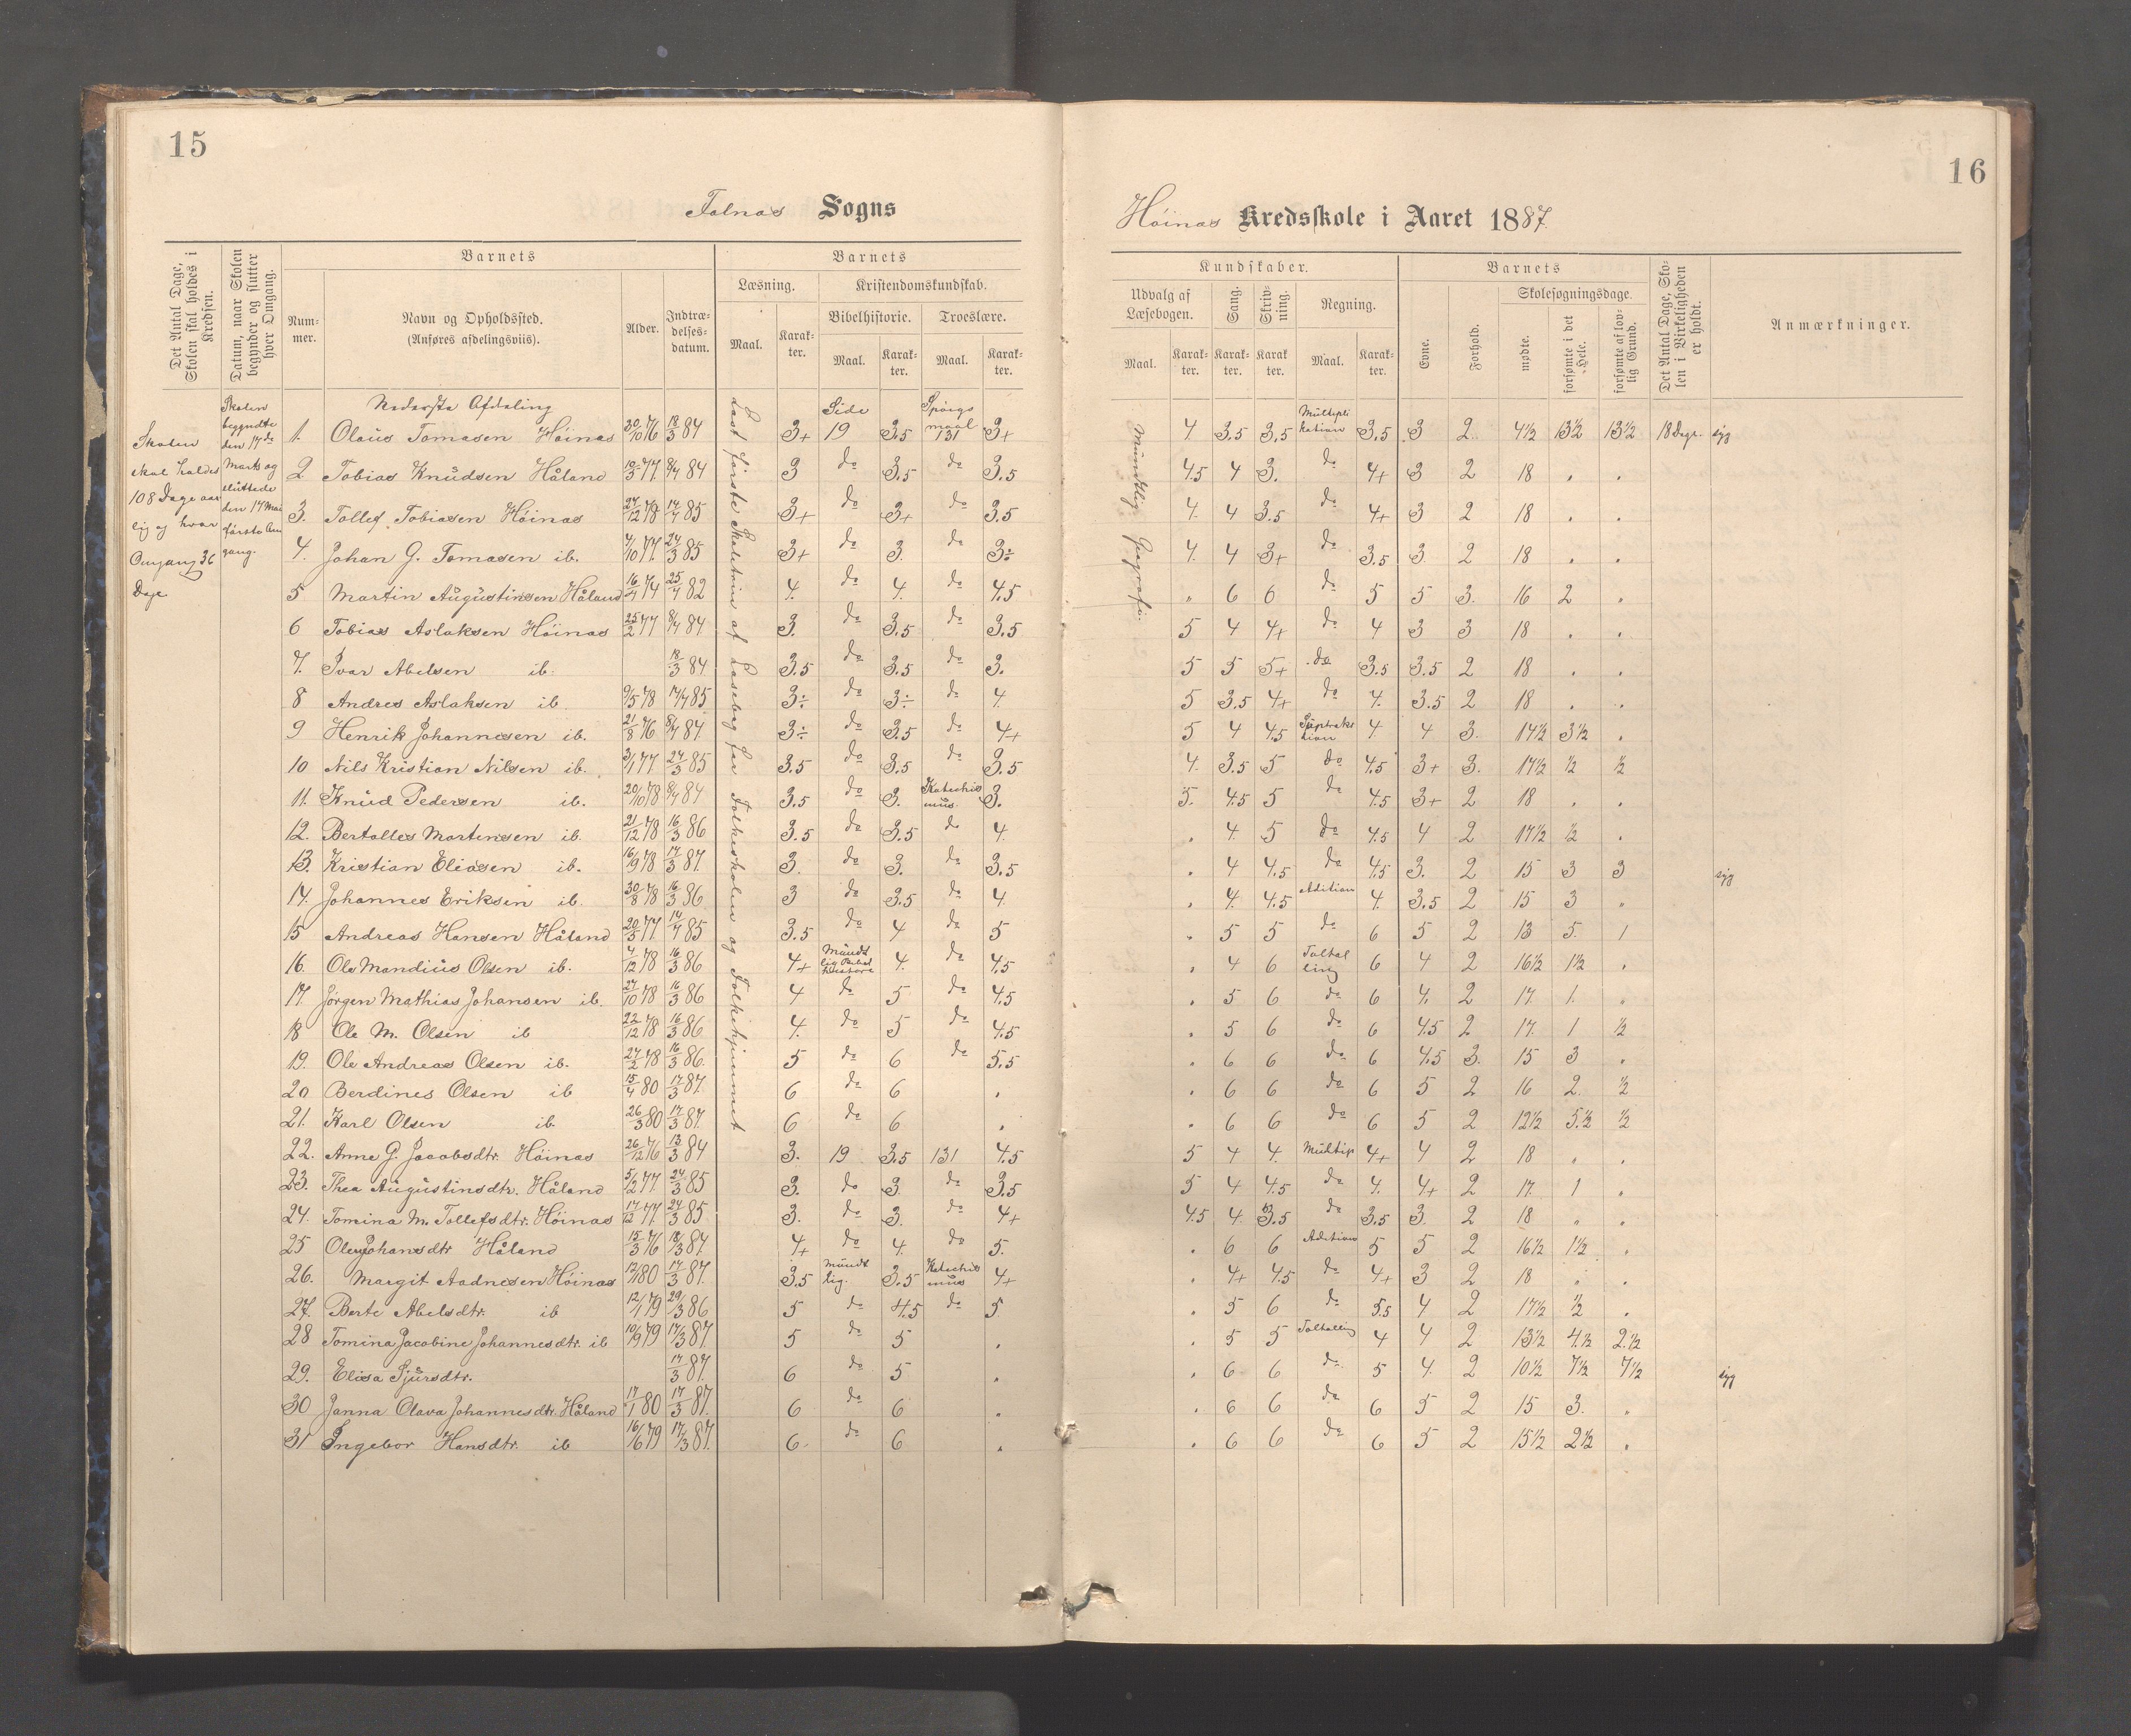 15
16
Falnes Sogns
Höinæs Kredsskole i Aaret 1887.
Det Antal Dage, Skolen skal holdes i Kredsen.
Datum, naar Skolen begynder og slutter hver Omgang.
Barnets
Num-mer.
Navn og Opholdssted.
(Anføres afdelingsviis).
Alder.
Indtræ-delses-datum.
Barnets
Læsning.
Maal.
Karak-ter.
Kristendomskundskab.
Bibelhistorie.
Maal.
Karak-ter.
Troeslære.
Maal.
Karak-ter.
Kundskaber.
Udvalg af Læsebogen.
Maal.
Karak-ter.
Sang.
Karak-ter.
Skriv-ning.
Karak-ter.
Regning.
Maal.
Karak-ter.
Barnets
Evne.
Forhold.
Skolesøgningsdage.
mødte.
forsømte i det Hele.
forsømte af lov-lig Grund.
Det Antal Dage, Sko-len i Virkeligheden er holdt.
Anmærkninger.
Skolen skal holdes 108 Dage aar lig og hver Omgang 36 Dage.
Skolen begyndte den 17de Marts og sluttede den 17 Mai første Om gang.
Læst første Skoletrin af Læsebog for Folkeskolen og Folkehjemmet
Mundtlig Geografi
Nederste Afdeling
1. Olaüs Tomasen Höinæs 20/10 76 18/3 84 3+ Side 19 3.5 Spörgsmaal 131 3+ 4 3.5 3.5 Multiplikation 3.5 3 2 4½ 13½ 13½ 18 Dage. syg
2 Tobias Knüdsen Håland 10/5 77. 8/4 84 3 do 3.5 do 3.5 4.5 4 3. do 4+ 3 2 18 " "
3. Tollef Tobiasen Höinæs 27/12 78 14/4 85 3+ do 3+ do 3.5 4. 4 3.5 do 4+ 3 2 18 " "
4. Johan G. Tomasen ib. 4/10 77. 24/3 85 3+ do 3 do 3÷ 4. 4 3+ do 3.5 3. 2 18 " "
5 Martin Aügüstinsen Håland 16/4 74 25/4 82 4. do 4. do 4.5 " 6 6 do 5 5 3. 16 2 "
6 Tobias Aslaksen Höinæs 25/2 77 8/4 84 3. do 3.5 do 3.5 5 4 4+ do 4 3 3 18 " "
7. Ivar Abelsen ib. 18/3 84 3.5 do 3.5 do 3. 5 5 5+ do 3.5 3.5 2 18 " "
8 Andres Aslaksen ib. 9/5 78 14/4 85 3÷ do 3÷ do 4. 5 3.5 4+ do 4. 3.5 2 18 " "
9 Henrik Johannesen ib. 21/8 76 8/4 84. 3÷ do 3.5 do 4+ 5 4 4.5 Süptraktion 4 4 3. 14½ 3½ "
10 Nils Kristian Nilsen ib. 3/1 77. 24/3 85 3.5 do 3.5 do 3.5 4. 3.5 5 do 4.5 3+ 3. 17½ ½ ½
11. Knüd Pedersen ib. 20/10 78 8/4 84 3.5 do 3. Katechismus. 3. 5. 4.5 5 do 4.5 3+ 2 18 " "
12. Bertalles Martensen ib. 21/12 78 16/3 86 3.5 do 3.5 do 4. " 4. 5 do 4.5 4 2 17½ ½ "
13. Kristian Eliasen ib. 16/9 78 17/3 87. 3. do 3. do 3.5 " 4 4.5 do 4.5 3. 2 15 3 3 syg
14. Johannes Eriksen ib. 30/8 78 16/3 86 3 do 3.5 do 4. " 4. 4.5 Adition 4. 3.5 2 15 3 "
15 Andreas Hansen Håland 20/5 77. 14/4 85 3.5 do 4 do 5 " 5 5 do 6 5 2 13 5. 1
16. Ole Mandius Olsen ib. 4/12 78 16/3 86 4+ 4. do 4.5 " 4 6 Taltalling 6 4 2 16½ 1½ "
17. Jørgen Mathias Johansen ib. 27/10 78 16/3 86 4 do 5 do 4.5 " 5 6 do 6 4. 2 17. 1. "
18 Ole M. Olsen ib 22/12 78 16/3 86 4. do 5 do 4.5 " 5 6 do 6 4.5 2 17. 1 ½
19. Ole Andreas Olsen ib. 27/2 78 16/3 86. 5 do 6 do 5.5 " 6 6 do 6 4.5 3. 15 3 "
20 Berdines Olsen ib 15/4 80 17/3 87. 6 do 6 " " 6 6 do 6 5 2 16 2. ½
21. Karl Olsen ib. 26/3 80 17/3 87. 6 do 6 " " 6 6 do 6 5 2 12½ 5.½ ½
22. Anne G. Jacobsdtr. Höinæs 26/12 76 13/3 84 3. 19 3.5 131 4.5 5 4 4. Mültip 4+ 4 2 18 " "
23. Thea Aügüstinsdtr. Håland 5/2 77. 24/3 85 3. do 3 do 3.5 5 4 4.5 do 4. 4+ 2 17. 1 "
24. Tomina M. Tollefsdtr. Höinæs 17/12 77. 24/3 85 3. do 3. do 4+ 4.5 4. 3.5 do 3.5 3. 2 18 " "
25 Olea Johansdtr Håland 15/3 76 18/3 87. 4+ do 4. do 5. " 6 6 Adition 5 5 2 16½ 1½ "
26. Margit Aadnesen Höinæs 12/1 80 17/3 87. 3.5 Mündtlig. 3.5 Katechismüs 4+ " 4+ 4.5 do 4+ 3 2 18 " "
27. Berte Abelsdtr. ib 12/1 79 29/3 86 5 do 4.5 do 5 " 5 6 do 5.5 4 2 17½ ½ "
28 Tomina Jacobine Johannesdtr. ib 10/9 79 17/3 87. 5 do 5 " " 5 5 Taltalling 4 4 2 13½ 4.½ 2.½
29. Elisa Sjürsdtr. 17/3 87. 6 do 5 " " 6 6 do 5 4. 2 10½ 7½ 7½ syg
30 Janna Olava Johannesdtr. Håland 17/1 80 17/3 87. 6 do 6 " " 6 6 do 6 5 2 15 3. "
31 Ingebor Hansdtr. ib 16/6 79 17/3 87. 6 do 6 " " 6 6 do 6 5 2 15½ 2½ "